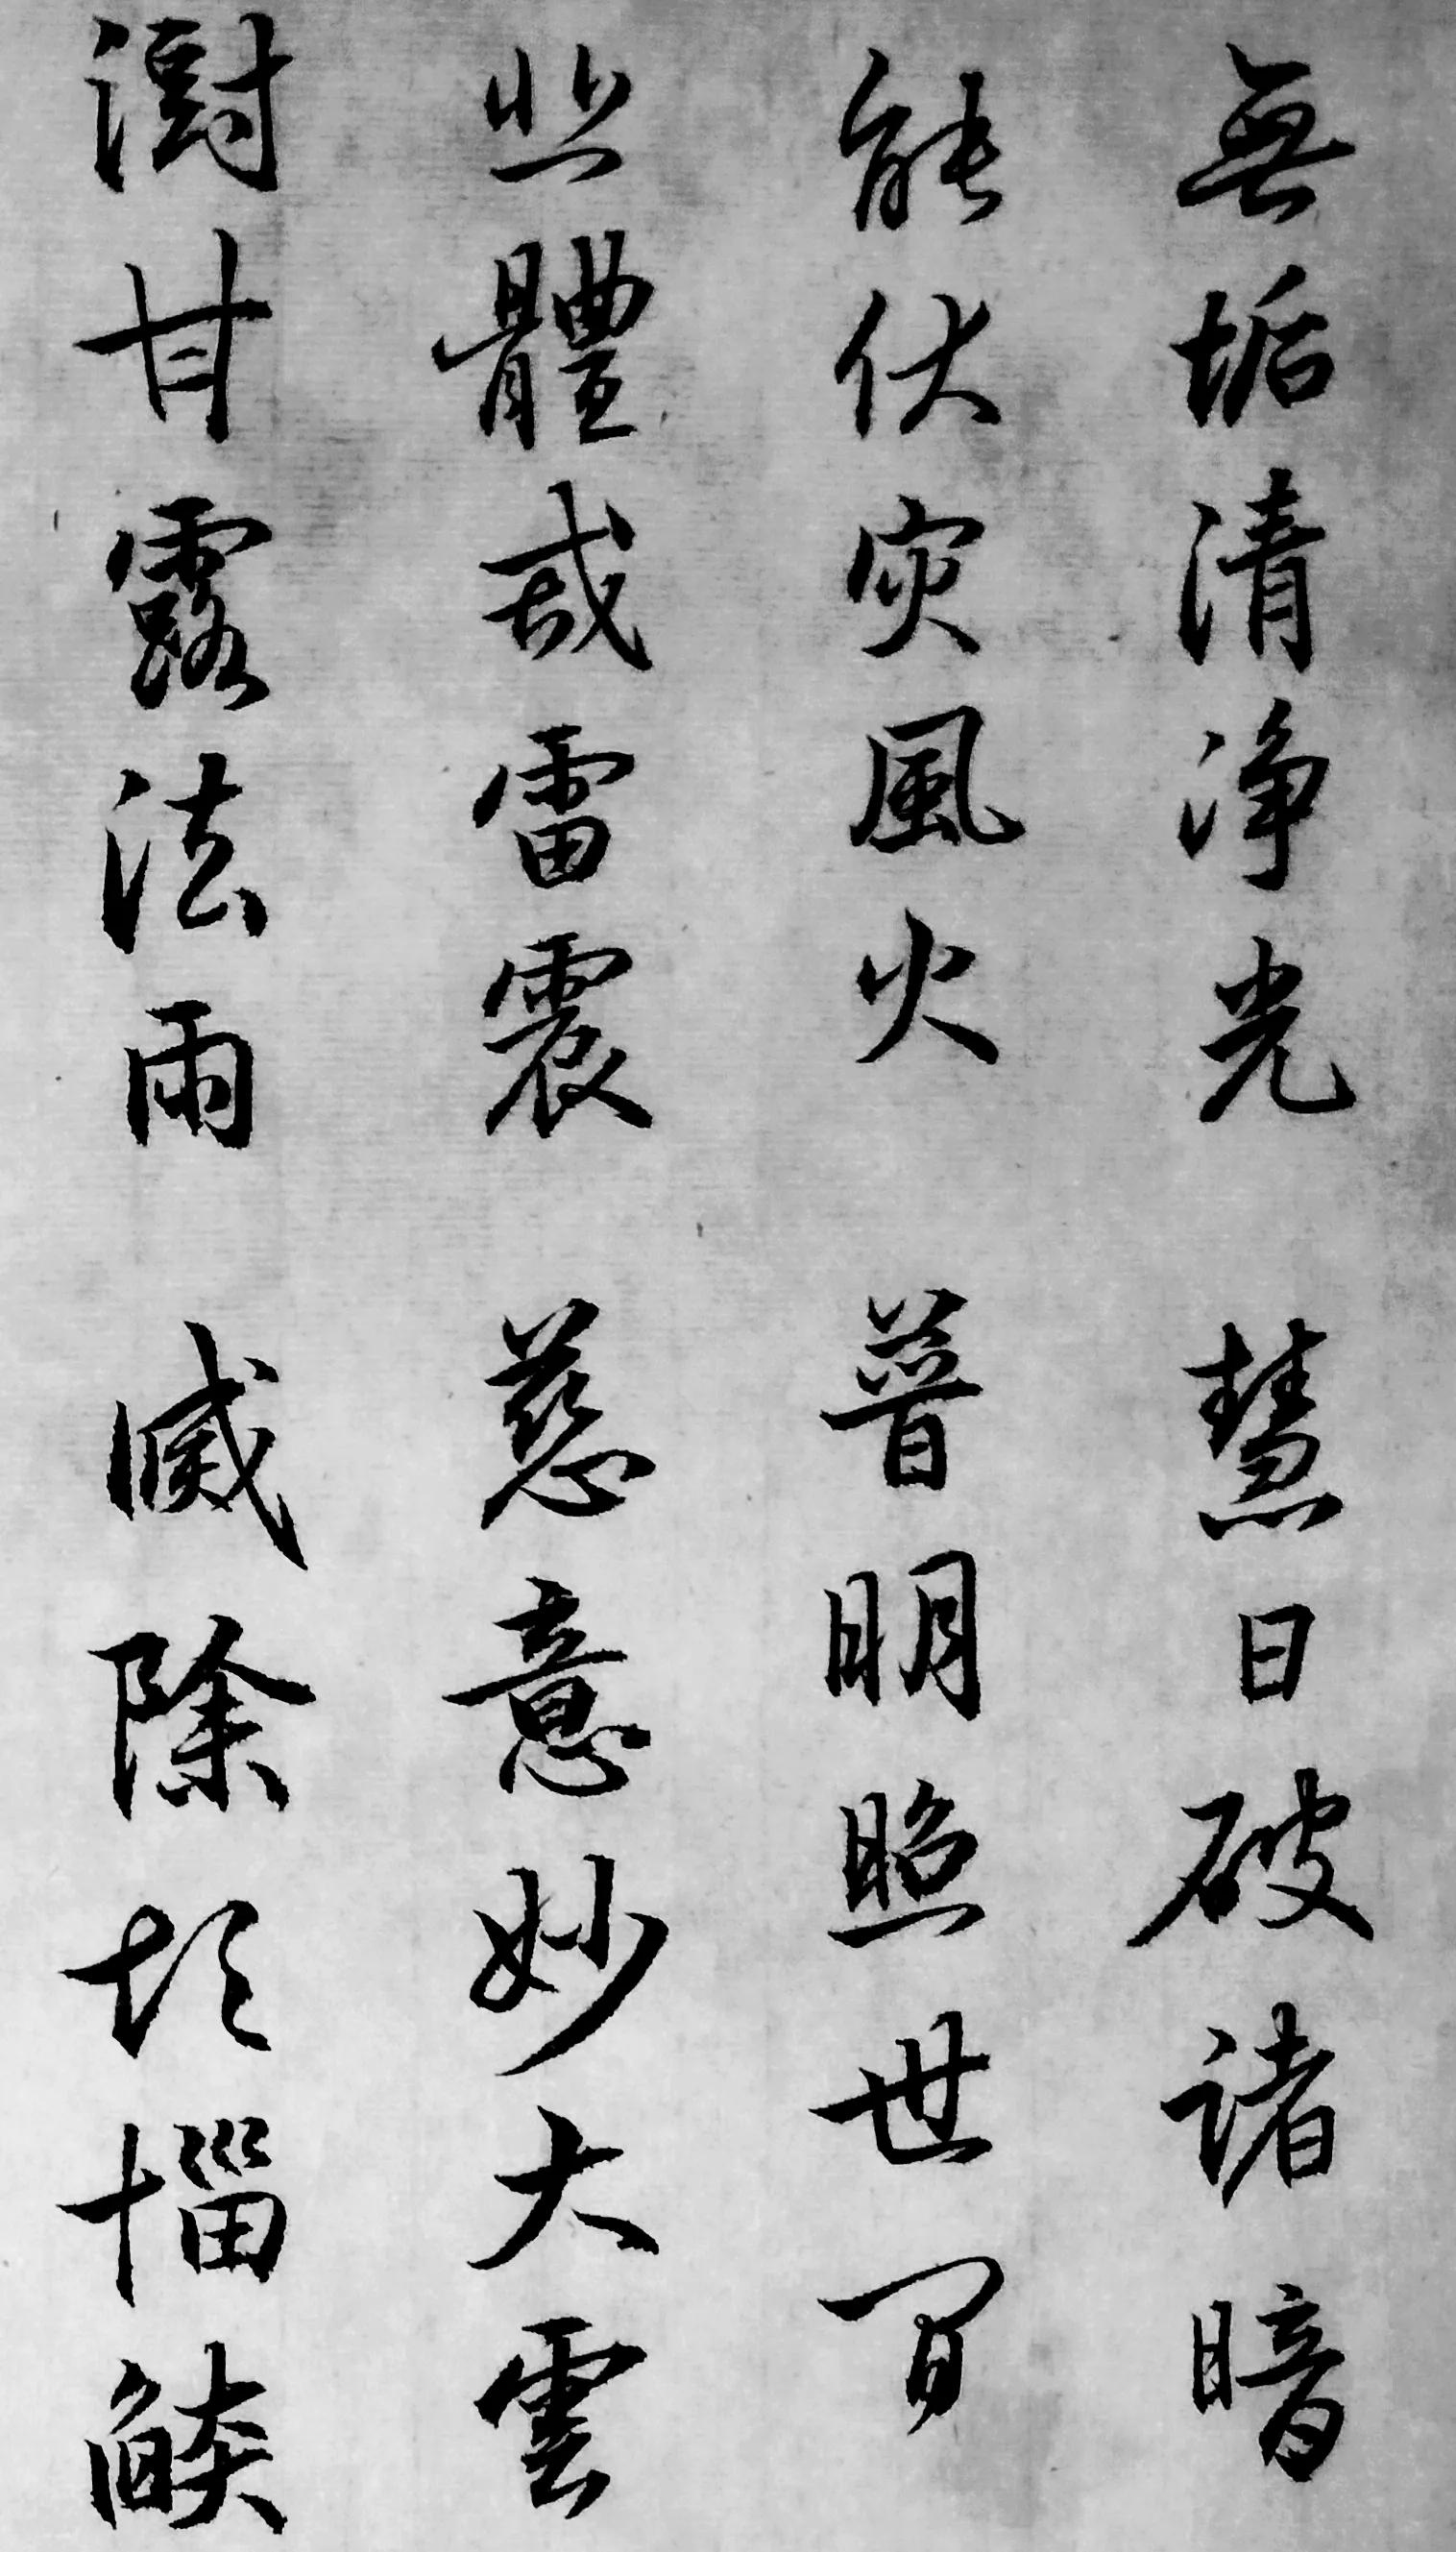 無垢清淨光 慧日破諸暗
能伏灾風火 普明照世間
悲體戒雷震 慈意妙大雲
澍甘露法雨 滅除煩惱燄